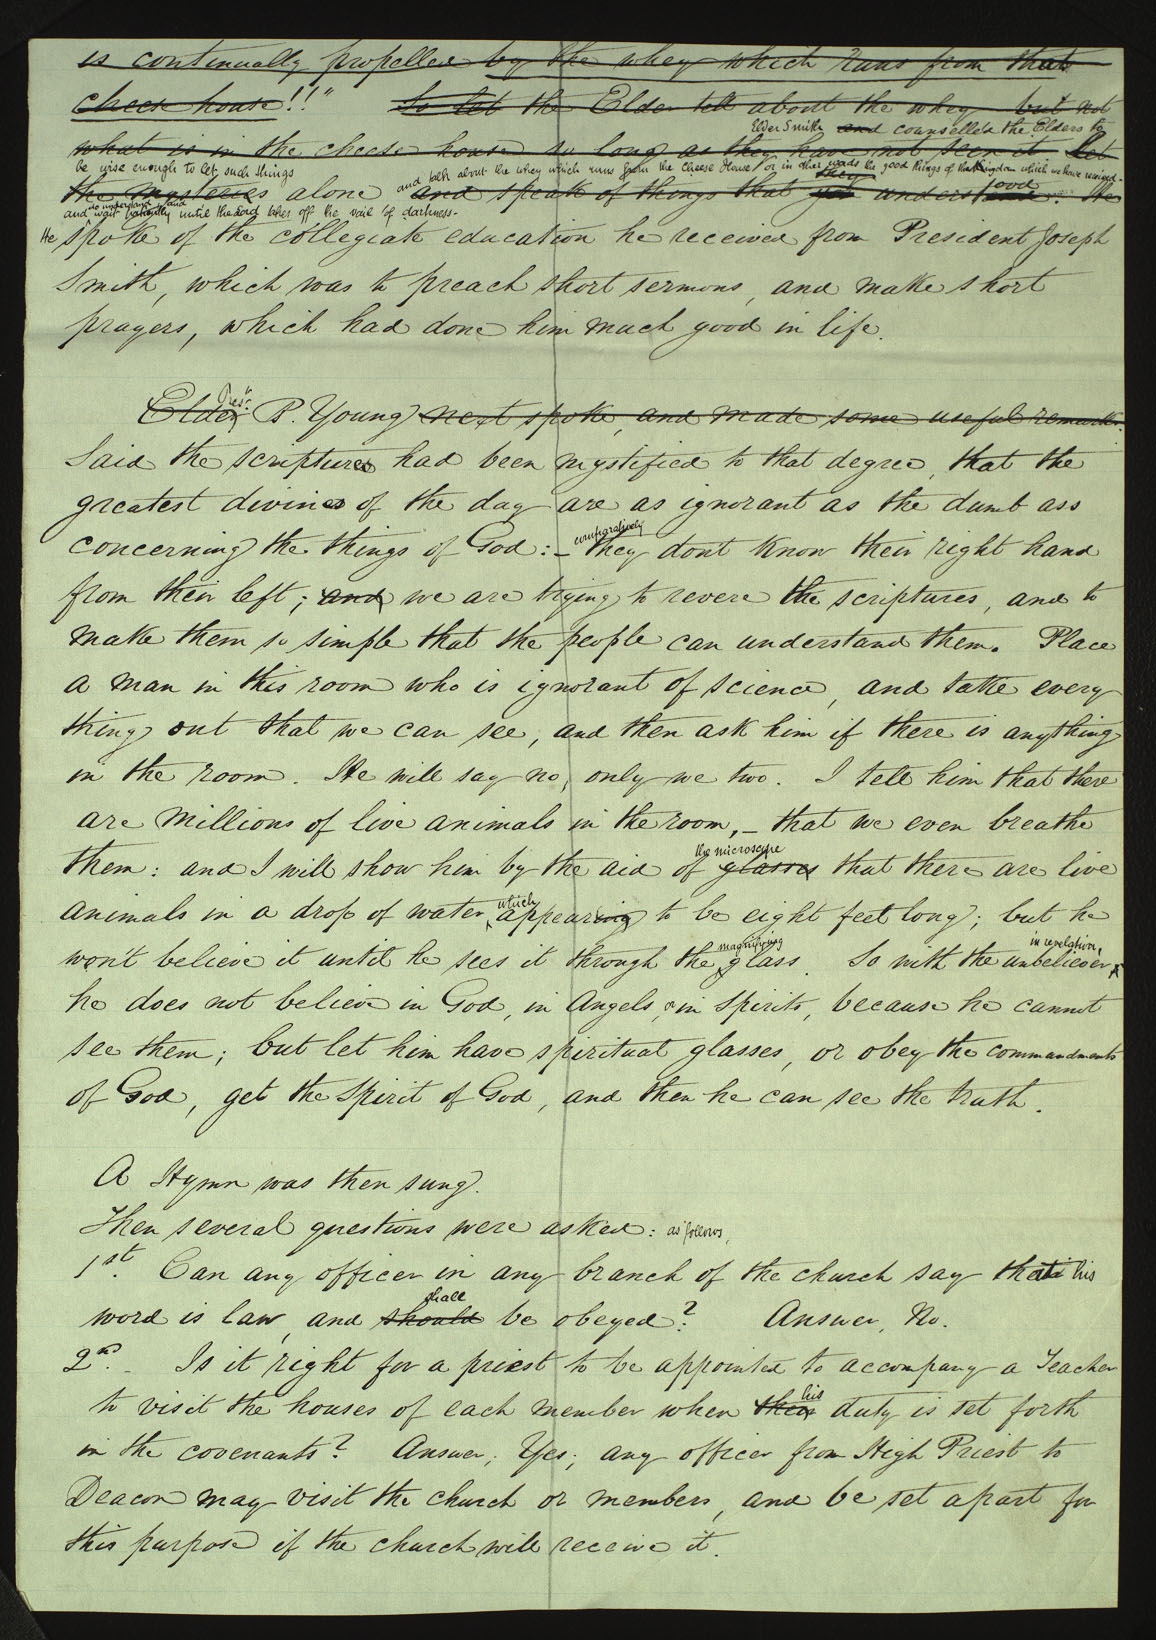 is continually propelled by the whey which runs from that
cheese house!!" So let the Elder tell about the whey but not
Elder Smith and counselled the Elders to
what is in the cheese house so long as they have not seen it Let
be wise enough to let such things
and talk about the whey which runs from the Cheese House or in other words the good things of the kingdom which we have received.
they
the mysteries alone and speak of things that yet understood. He
no understand and
and wait patiently until the Lord takes off the vail of darkness.
He spoke of the collegiate education he received from President Joseph
Smith, which was to preach short sermons, and make short
prayers, which had done him much good in life.
Prest.
Elder B. Young next spoke, and made some useful remarks.
Said the scriptures had been mystified to that degree, that the
greatest divines of the day are as ignorant as the dumb ass
concerning the things of God:— comparatively they dont know their right hand
from their left; and we are trying to revere the scriptures, and to
make them so simple that the people can understand them. Place
a man in this room who is ignorant of science, and take every
thing out that we can see, and then ask him if there is anything
in the room. He will say no, only we two. I tell him that there
are Millions of live animals in the room,— that we even breathe
the microscope
them: and I will show him by the aid of glasses that there are live
animals in a drop of water, which appearing to be eight feet long; but he
magnifying in revelation,
won't believe it until he sees it through the glass. So with the unbeliever
he does not believe in God, in Angels, or in Spirits, because he cannot
see them; but let him have spiritual glasses, or obey the commandments
of God, get the Spirit of God, and then he can see the truth.
A Hymn was then sung.
Then several questions were asked: as follows,
1st. Can any officer in any branch of the church say that his
shall
word is law, and should be obeyed? Answer, No.
2nd.— Is it right for a priest to be appointed to accompany a Teacher
his
to visit the houses of each member when their duty is set forth
in the covenants? Answer; Yes; any officer from High Priest to
Deacon may visit the church or members, and be set apart for
this purpose if the church will receive it.